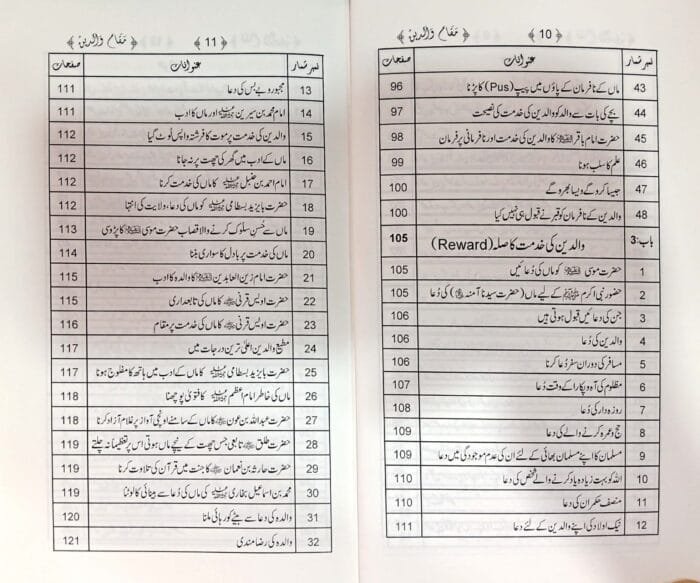 ﴿ 10 ﴾ ﴿ مقامِ والدین ﴾
نمبر شمار عنوانات صفحات
43 ماں کے نافرمان کے پاؤں میں پیپ (Pus) کا پڑنا 96
44 بچے کی بات سے والد کو والدین کی خدمت کی نصیحت 97
45 حضرت امام باقر کا والدین کی خدمت اور نافرمانی پر فرمان 98
46 علم کا سلب ہونا 99
47 جیسا کرو گے ویسا بھرو گے 100
48 والدین کے نافرمان کو قبر نے قبول ہی نہیں کیا 100
باب:3 والدین کی خدمت کا صلہ (Reward) 105
1 حضرت موسیٰ کو ماں کی دُعائیں 105
2 حضور نبی اکرم ﷺ کے لیے ماں (حضرت سیدنا آمنہ) کی دُعا 105
3 جن کی دعائیں قبول ہوتی ہیں 106
4 والدین کی دُعا 106
5 مسافر کی دورانِ سفر دُعا کرنا 106
6 مظلوم کی آہ و پکار کے وقت دُعا 107
7 روزہ دار کی دُعا 108
8 حج و عمرہ کرنے والے کی دعا 109
9 مسلمان کا اپنے مسلمان بھائی کے لئے ان کی عدم موجودگی میں دعا 109
10 اللہ کو بہت زیادہ یاد کرنے والے شخص کی دعا 110
11 منصف حکمران کی دعا 110
12 نیک اولاد کی اپنے والدین کے لئے دعا 111
﴿ 11 ﴾ ﴿ مقامِ والدین ﴾
نمبر شمار عنوانات صفحات
13 مجبور و بے بس کی دعا 111
14 امام محمد بن سیرین اور ماں کا ادب 111
15 والدین کی خدمت پر موت کا فرشتہ واپس لوٹ گیا 112
16 ماں کے ادب میں گھر کی چھت پر نہ جانا 112
17 امام احمد بن حنبل کا ماں کی خدمت کرنا 112
18 حضرت بایزید بسطامی کو ماں کی دعا، ولایت کی انتہا 112
19 ماں سے حُسنِ سلوک کرنے والا قصاب حضرت موسیٰ کا پڑوسی 113
20 ماں کی خدمت پر بادل کا سواری بننا 114
21 حضرت امام زین العابدین کا والدہ کا ادب 115
22 حضرت اویس قرنی کا ماں کی تابعداری 115
23 حضرت اویس قرنی کا ماں کی خدمت پر مقام 116
24 مطیع والدین اعلیٰ ترین درجات میں 117
25 حضرت بایزید بسطامی کا ماں کے ادب میں ہاتھ کا مفلوج ہونا 117
26 ماں کی خاطر امام اعظم کا فتویٰ پوچھنا 118
27 حضرت عبداللہ بن عون کا ماں کے سامنے اونچی آواز پر غلام آزاد کرنا 118
28 حضرت طلق تابعی جس چھت کے نیچے ماں ہوتی اس پر تعظیماً نہ چلتے 119
29 حضرت حارثہ بن نعمان کا جنت میں قرآن کی تلاوت کرنا 119
30 محمد بن اسماعیل بخاری کی ماں کی دُعا سے بینائی کا لوٹنا 119
31 والدہ کی دعا سے بیٹے کو رہائی ملنا 120
32 والدہ کی رضا مندی 121